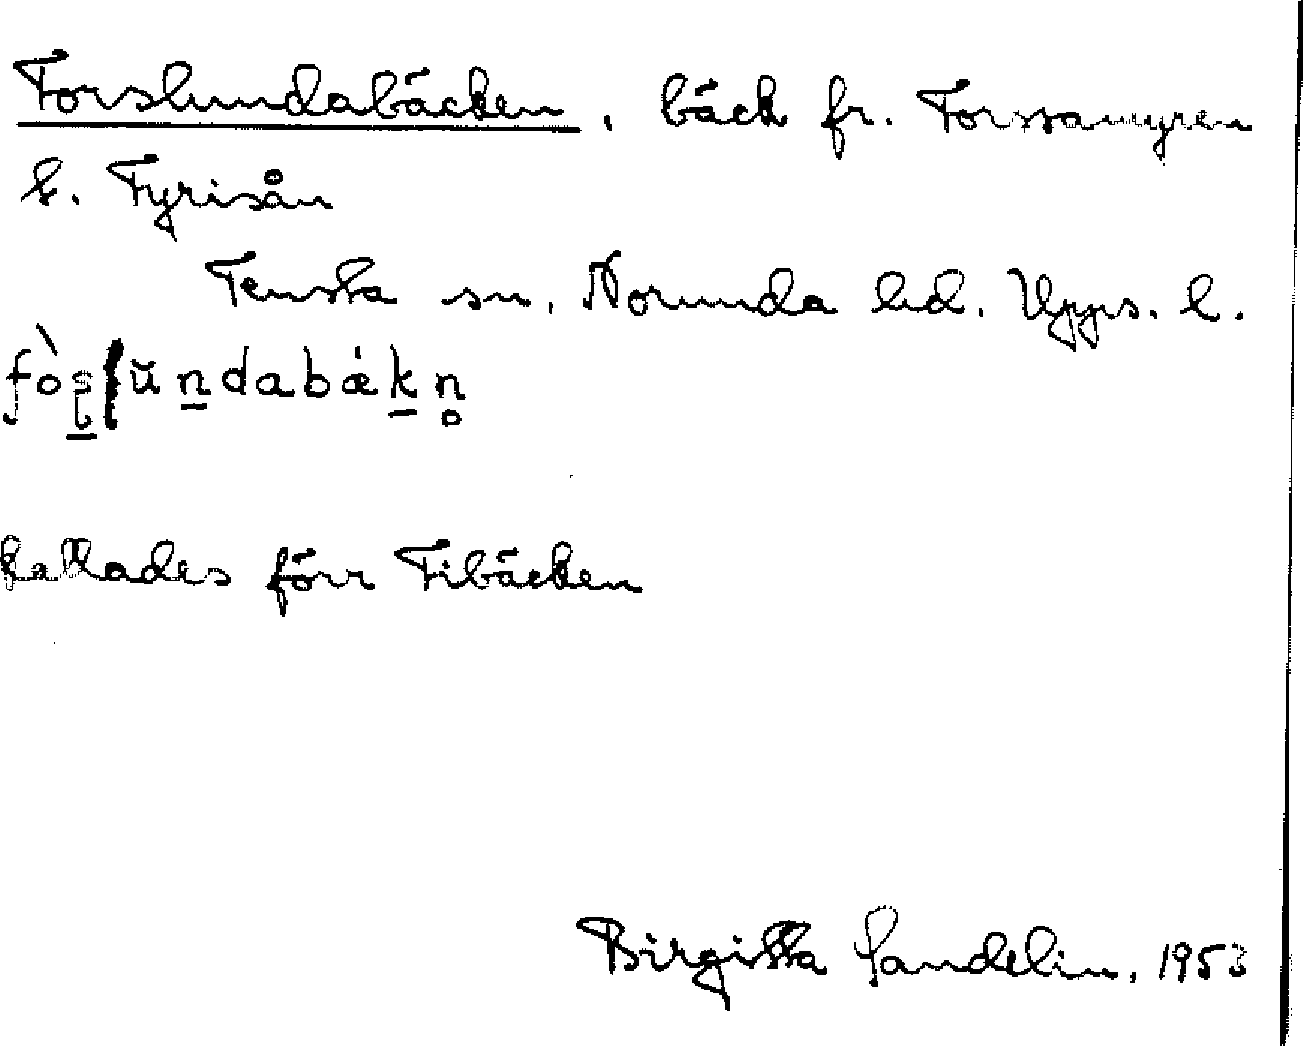 Forslundabäcken, bäck fr. Forssamyren
t. Fyrisån
Tensta sn, Norunda hd. Upps. l.
fò̀s̠lŭn̠dabǽk̠n̥
kallades förr Fibäcken
Birgitta Sandelin, 1953